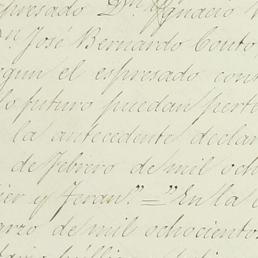 presado Dn. Ygnacio
n. José Bernardo Couto
gun el espresado cont
lo futuro puedan perte
la antecedente declar
de febrero de mil och
y Feran." = "En la
arzo de mil ochocientos